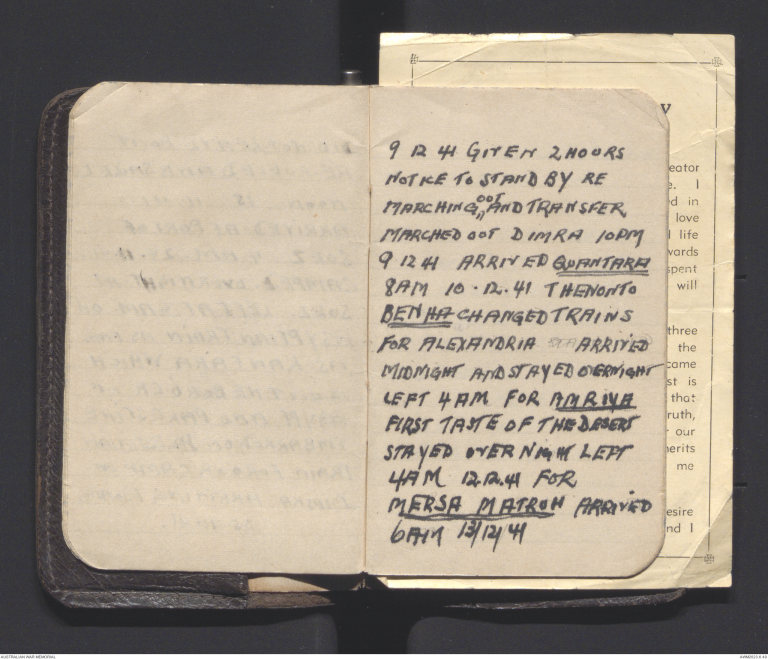 9 12 41 GIVEN 2 HOURS
NOTICE TO STAND BY RE
MARCHING OUT AND TRANSFER
MARCHED OUT DIMRA 10PM
9 12 41 ARRIVED QUANTARA
8AM 10.12.41 THENONTO
BENHA CHANGED TRAINS
FOR ALEXANDRIA ARRIVED
MIDNIGHT AND STAYED OVERNIGHT
LEFT 4AM FOR AMRIYA
FIRST TASTE OF THE DESERT
STAYED OVERNIGHT LEFT
4AM 12.12.41 FOR
MERSA MATRUH ARRIVED
6AM 13/12/41
y
eator
e. I
ed in
love
l life
wards
spent
will
three
the
came
st is
that
ruth,
our
merits
me
esire
nd I
AUSTRALIAN WAR MEMORIAL